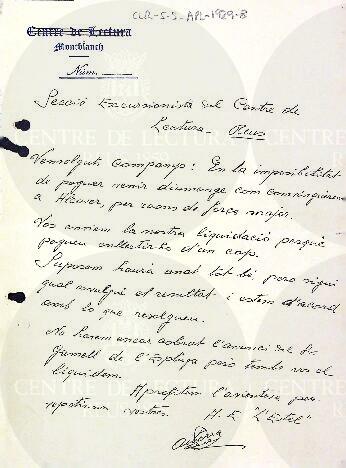 CLR-S-S_APL-1929-8
Centre de Lectura
Montblanch
Núm.
Secció Excursionista del Centre de
Lectura - Reus
Benvolguts companys: En la imposibilitat
de poguer venir diumenge com convinguerem
a Alcover, per raons de força major.
Vos enviem la nostra liquidació perquè
pogueu enllestir-ho d'un cop.
Suposem haurà anat tot bé pero sigui
qual vulgui el resultat i estem d'acord
amb lo que resolgueu.
No havem encar cobrat l'anunci de
de l'Espluga però també vos el
liquidem.
Aprofitem l'avinentesa per
repetir-nos vostres. A. E. "L'Estel"
CENTRE DE LECTURA
CENTRE DE LECTURA